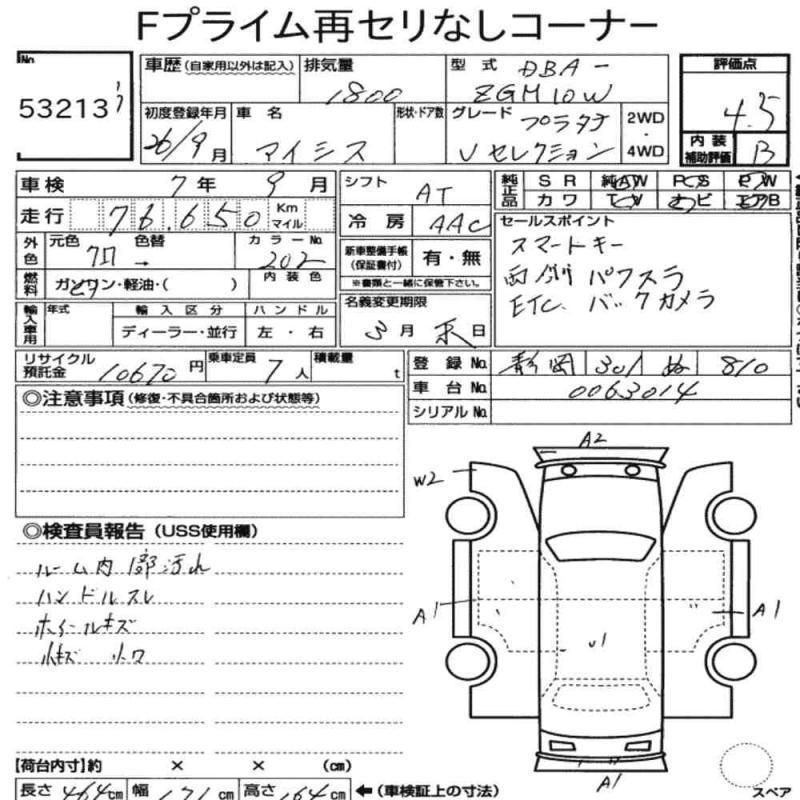 Fプライム再セリなしコーナー
No 53213
車歴 (自家用以外は記入) 排気量 1800 型式 DBA- ZGM10W 評価点 4.5
初度登録年月 26/9月 車名 アイシス 形状・ドア数 グレード プラタナ Vセレクション 2WD・4WD 内装補助評価 B
車検 7年 9月 シフト AT 純正品 SR 純AW PS PW
カワ TV ナビ エアB
走行 76,650 Km マイル 冷房 AAC セールスポイント
外色 元色 クロ → 色替 カラーNo. 202 新車整備手帳 (保証書付) 有・無 スマートキー
※書類と一緒に保管下さい。 両側パワスラ
燃料 ガソリン・軽油・( ) 内装色 名義変更期限 ETC. バックカメラ
輸入車用 年式 輸入区分 ハンドル 3月末日
ディーラー・並行 左・右
リサイクル預託金 10670円 乗車定員 7人 積載量 t 登録No. 静岡 301 ぬ 810
車台No. 0063014
シリアルNo.
◎注意事項 (修復・不具合箇所および状態等)
A2
W2
◎検査員報告 (USS使用欄)
ルーム内 汚れ
ハンドルスレ
ホイールキズ
A1 A1
U1
【荷台内寸】約 × × (cm)
長さ 464cm 幅 171cm 高さ 164cm ←(車検証上の寸法)
A1
スペア